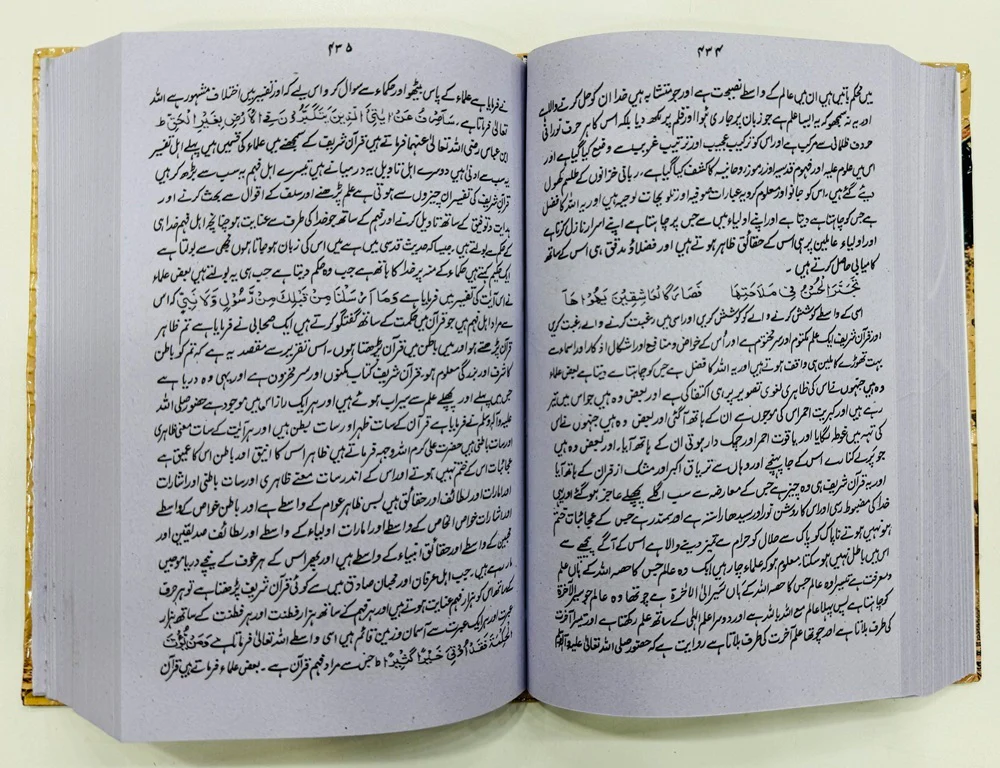 ۴۳۴
میں محکم باتیں ہیں ان میں عالم کے واسطے نصیحت ہے اور جو متشابہ ہیں خدا ان کو حل کرنے والا ہے
اور یہ نہ سمجھو کہ یہ ایسا علم ہے جو زبان پر جاری ہوا اور قلم نے لکھ دیا بلکہ اس کا ہر حرف نورانی
حدف ظلالی سے مرکب ہے اور اس کو ترکیب عجیب اور ترتیب غریب سے وضع کیا گیا ہے اور
اس میں علوم علیہ اور فہوم قدسیہ اور رموز روحانیہ کا کشف کیا گیا ہے، ربانی خزانوں کے طلسم کھول
دیئے گئے ہیں، اس کو جانو اور معلوم کرو یہ عبارات شوقیہ اور تلویحات لوحیہ ہیں اور یہ اللہ کا فضل
ہے جس کو چاہتا ہے دیتا ہے اور اپنے اولیاء میں سے جس پر چاہتا ہے اپنے اسرار نازل کرتا ہے
اور اولیاء عاملین پر ہی اس کے حقائق ظاہر ہوتے ہیں اور فضلاؤ مدقق ہی اس کے ساتھ
کامیابی حاصل کرتے ہیں۔
الْحُسْنُ فِی مَلَاحَتِهَا فَصَارَ
اسی کے واسطے کوشش کرنے والے کو کوشش کریں اور اسی میں رغبت کرنے والے رغبت کریں
اور قرآن شریف ایک علم مکتوم اور سر مختوم ہے اور اُس کے خواص و منافع اور اشکال اذکار اور اسماء سے
بہت تھوڑے کاملین ہی واقف ہوتے ہیں اور یہ اللہ کا فضل ہے جس کو چاہتا ہے دیتا ہے بعض علماء
وہ ہیں جنہوں نے اس کی ظاہری لغوی تصویر پر ہی اکتفا کی ہے اور بعض وہ ہیں جو اس میں تیر
رہے ہیں اور کبریت احمر اس کی موجوں سے ان کے ہاتھ آ گئی اور بعض وہ ہیں جنہوں نے اس
کی تہہ میں غوطہ لگایا اور یاقوت احمر اور چمک دار موتی ان کے ہاتھ آیا۔ اور بعض وہ ہیں
جو پرلے کنارے اس کے جا پہنچے اور وہاں سے تریاق اکبر اور مشک ازفران کے ہاتھ آیا
اور یہ قرآن شریف ہی وہ چیز ہے جس کے معارضہ سے سب اگلے پچھلے عاجز ہو گئے اور یہی
خدا کی مضبوط رسی اور اس کا روشن نور اور سیدھا راستہ ہے اور سمندر ہے جس کے عجائبات ختم
نہیں ہوتے ناپاک کو پاک سے حلال کو حرام سے تمیز دینے والا ہے اس کے آگے پیچھے سے
اس میں باطل نہیں ہو سکتا معلوم ہو کہ علماء چار ہیں ایک وہ عالم جس کا حصہ اللہ کے ہاں علم
و معرفت ہے تیسرا وہ عالم جس کا حصہ اللہ کے ہاں سَیرالی الآخرۃ ہے چوتھا وہ عالم جو سیر الآخرۃ
کو جانتا ہے پس پہلا عالم مع اللہ باللہ ہے اور دوسرا علم الٰہی کے ساتھ علم رکھتا ہے اور تیسرا آخرت
کی طرف بلاتا ہے اور چوتھا علم آخرت کی طرف بلاتا ہے روایت ہے کہ حضور صلی اللہ تعالیٰ علیہ وآلہٖ وسلم
۴۳۵
نے فرمایا ہے علماء کے پاس بیٹھو اور حکماء سے سوال کرو اس لیے کہ اور تفسیر میں اختلاف مشہور ہے اللہ
تعالیٰ فرماتا ہے۔ سَاَصْرِفُ عَنْ اٰیٰتِیَ الَّذِیْنَ یَتَکَبَّرُوْنَ فِی الْاَرْضِ بِغَیْرِ الْحَقِّ ط
ابن عباس رضی اللہ تعالیٰ عنہما فرماتے ہیں قرآن شریف کے سمجھنے میں علماء کی قسمیں ہیں پہلے اہل تفسیر
یہ سب سے ادنیٰ ہیں دوسرے اہل تاویل یہ درمیانے ہیں تیسرے اہل فہم یہ سب سے بڑھ کر ہیں
قرآن شریف کی تفسیر ان چیزوں سے ہوتی ہے علم پڑھنے اور سلف کے اقوال سے بحث کرنے اور
ہدایت و توفیق کے ساتھ تاویل کرنے اور فہم کے ساتھ جو خدا کی طرف سے عنایت ہو چنانچہ اہل فہم خدا ہی
کے حکم سے بولتے ہیں۔ جیسا کہ حدیث قدسی میں ہے میں اس کی زبان ہو جاتا ہوں مجھی سے بولتا ہے
ایک حکیم کہتے ہیں حکماء کے منہ پر خدا کا ہاتھ ہے جب وہ حکم دیتا ہے جب ہی یہ بولتے ہیں بعض علماء
نے اس آیت کی تفسیر میں فرمایا ہے وَمَا اَرْسَلْنَا مِنْ قَبْلِکَ مِنْ رَّسُوْلٍ وَّلَا نَبِیٍّ کہ اس
سے مراد اہل فہم ہیں جو قرآن میں حکمت کے ساتھ گفتگو کرتے ہیں ایک صحابی نے فرمایا ہے تم ظاہر
قرآن پڑھتے ہو اور میں باطن میں قرآن پڑھتا ہوں۔ اس تقریر سے مقصد یہ ہے کہ تم کو باطن
کا شرف اور بزرگی معلوم ہو، قرآن شریف کتاب مکنون اور سر مخزون ہے اور یہی وہ دریا ہے
جس میں پہلے اور پچھلے علم سے سیراب ہوئے ہیں اور ہر ایک راز اس میں موجود ہے حضور صلی اللہ
علیہ وآلہٖ وسلم نے فرمایا ہے قرآن کے سات ظہر اور سات بطن ہیں اور ہر آیت کے سات معنی ظاہری
اور سات باطنی ہیں حضرت علی کرم اللہ وجہہ فرماتے ہیں ظاہر اس کا انیق اور باطن اس کا عمیق ہے
عجائبات اس کے ختم نہیں ہوتے اور اس کے اندر سات معنے ظاہری اور سات باطنی اور اشارات
اور امارات اور لطائف اور حقائق ہیں بس ظاہر عوام کے واسطے ہے اور باطن خواص کے واسطے
اور اشارات خواص الخاص کے واسطے اور امارات اولیاء کے واسطے اور لطائف صدیقین اور
محبین کے واسطے اور حقائق انبیاء کے واسطے ہیں اور پھر اس کے ہر حرف کے نیچے دریا موجیں
مار رہے ہیں۔ جب اہل عرفان اور محبان صادق میں سے کوئی قرآن شریف پڑھتا ہے تو ہر حرف
کے ساتھ اس کو ہزار فہم عنایت ہوتے ہیں اور ہر فہم کے ساتھ ہزار فطنت اور ہر فطنت کے ساتھ ہزار
عبرت اور ہر ایک عبرت سے آسمان و زمین قائم ہیں اسی واسطے اللہ تعالیٰ فرماتا ہے وَمَنْ یُّؤْتَ
الْحِکْمَۃَ فَقَدْ اُوْتِیَ خَیْرًا کَثِیْرًا ط جس سے مراد فہم قرآن ہے۔ بعض علماء فرماتے ہیں قرآن